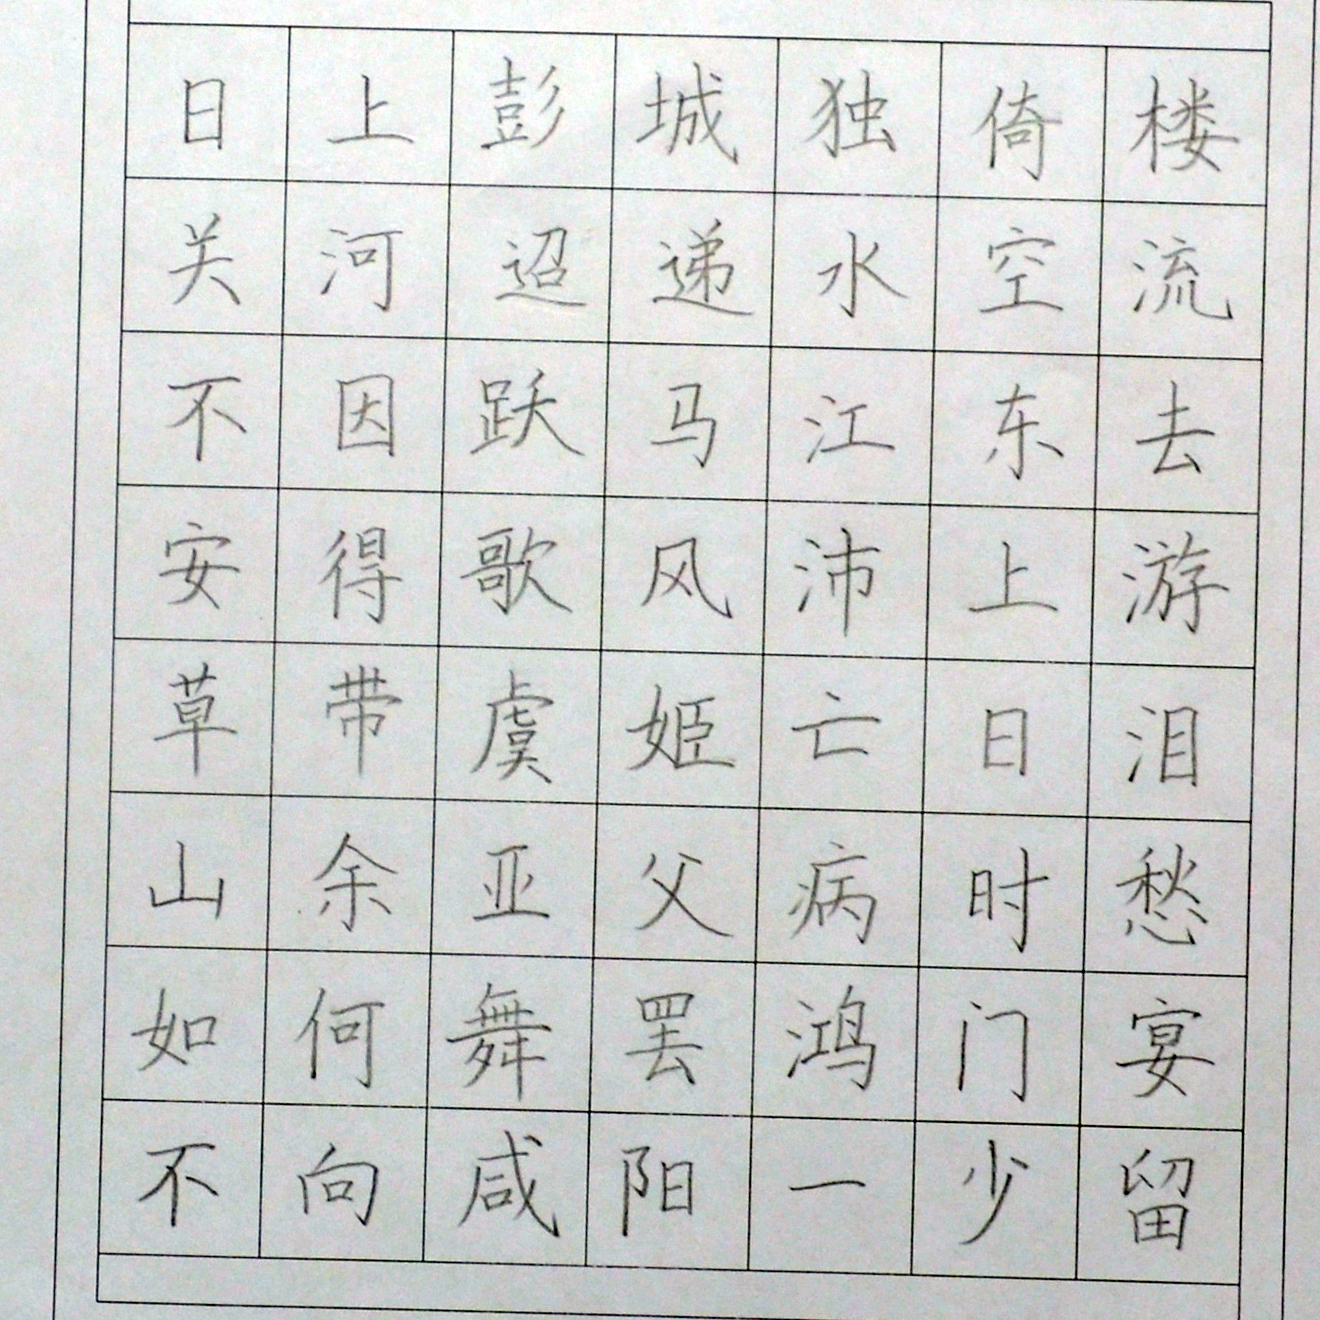 日上彭城独倚楼
关河迢递水空流
不因跃马江东去
安得歌风沛上游
草带虞姬亡日泪
山余亚父病时愁
如何舞罢鸿门宴
不向咸阳一少留